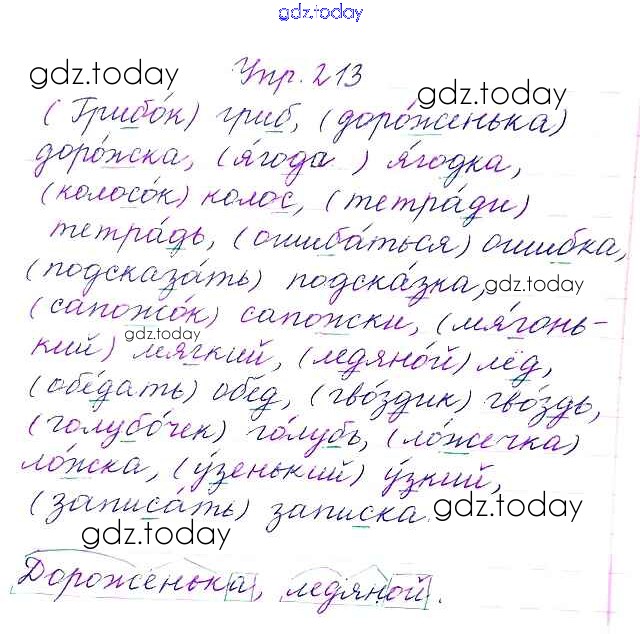 gdz.today
gdz.today Упр. 213
gdz.today
(Грибо́к) гриб, (доро́женька)
доро́жка, (я́года ) я́годка,
(колосо́к) колос, (тетра́ди)
тетра́дь, (ошиба́ться) ошибка,
(подсказа́ть) подска́зка, gdz.today
(сапожо́к) сапожки, (мя́гонь-
gdz.today
кий) мягкий, (ледяно́й) лёд,
(обе́дать) обе́д, (гво́здик) гво́здь,
(голубо́чек) го́лубь, (ло́жечка)
ло́жка, (у́зенький) у́зкий,
(записа́ть) записка. gdz.today
gdz.today
Дороженька, ледяной.